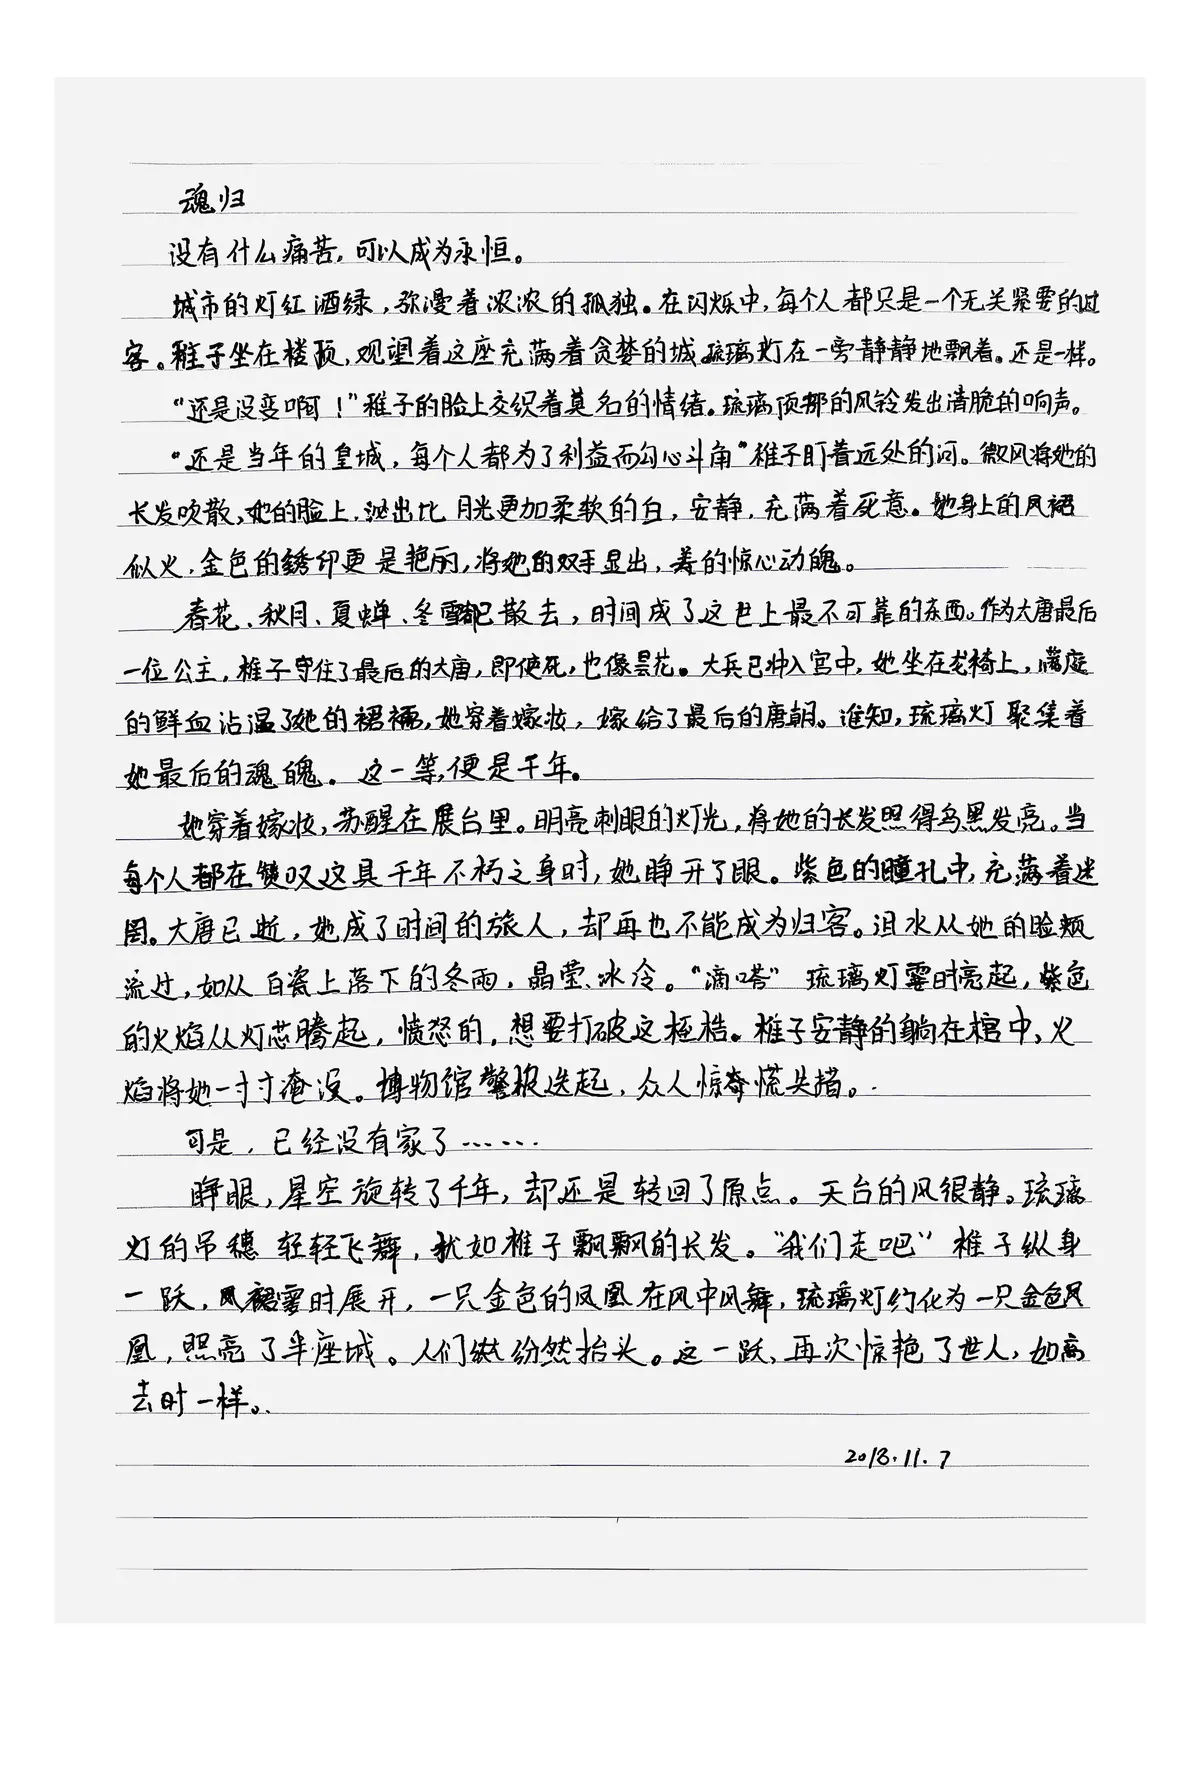 魂归
没有什么痛苦,可以成为永恒。
城市的灯红酒绿,弥漫着浓浓的孤独。在闪烁中,每个人都只是一个无关紧要的过
客。稚子坐在楼顶,观望着这座充满着贪婪的城。琉璃灯在一旁静静地飘着。还是一样。
“还是没变啊!”稚子的脸上交织着莫名的情绪。琉璃顶挪的风铃发出清脆的响声。
“还是当年的皇城,每个人都为了利益而勾心斗角”稚子盯着远处的河。微风将她的
长发吹散,她的脸上,泌出比月光更加柔软的白,安静,充满着死意。她身上的凤裙
似火,金色的绣印更是艳丽,将她的双手显出,美的惊心动魄。
春花、秋月、夏蝉、冬雪都已散去,时间成了这世上最不可靠的东西。作为大唐最后
一位公主,稚子守住了最后的大唐,即使死,也像昙花。大兵已冲入宫中,她坐在龙椅上,满庭
的鲜血沾湿了她的裙襦,她穿着嫁妆,嫁给了最后的唐朝。谁知,琉璃灯聚集着
她最后的魂魄。这一等,便是千年。
她穿着嫁妆,苏醒在展台里。明亮刺眼的灯光,将她的长发照得乌黑发亮。当
每个人都在赞叹这具千年不朽之身时,她睁开了眼。紫色的瞳孔中,充满着迷
罔。大唐已逝,她成了时间的旅人,却再也不能成为归客。泪水从她的脸颊
流过,如从白瓷上落下的冬雨,晶莹、冰冷。“滴嗒”琉璃灯霎时亮起,紫色
的火焰从灯芯腾起,愤怒的,想要打破这桎梏。稚子安静的躺在棺中,火
焰将她一寸寸淹没。博物馆警报迭起,众人惊奇慌失措。
可是,已经没有家了……
睁眼,星空旋转了千年,却还是转回了原点。天台的风很静。琉璃
灯的吊穗轻轻飞舞,犹如稚子飘飘的长发。“我们走吧”稚子纵身
一跃,凤裙霎时展开,一只金色的凤凰在风中风舞,琉璃灯幻化为一只金色凤
凰,照亮了半座城。人们纷纷然抬头。这一跃,再次惊艳了世人,如离
去时一样。
2018.11.7